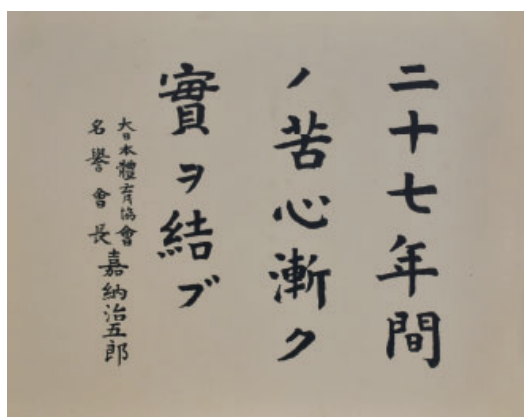 二十七年間
ノ苦心漸ク
實ヲ結ブ
大日本體育協會
名譽會長 嘉納治五郎